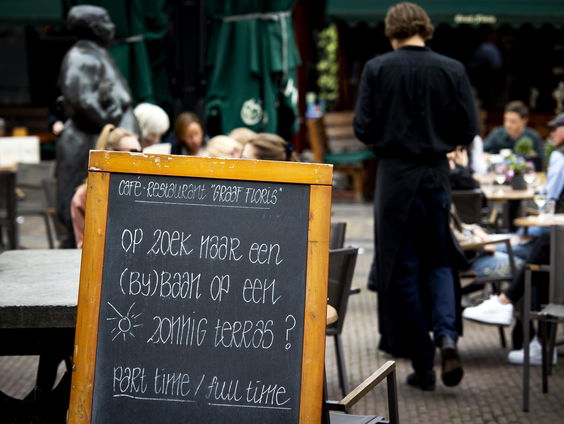 Café-Restaurant "Graaf Floris"
Op zoek naar een
(by)baan op een
zonnig terras ?
part time / full time